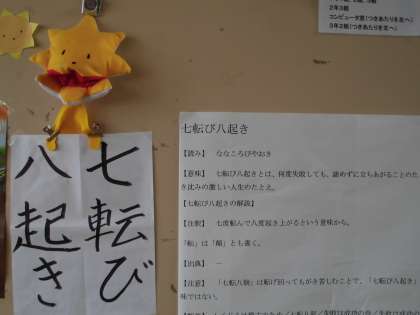 2年3組
コンピュータ室(つきあたりを左へ)
3年2組(つきあたりを左へ)
七転び
八起き
七転び八起き
【読み】 ななころびやおき
【意味】 七転び八起きとは、何度失敗しても、諦めずに立ちあがることのた
き沈みの激しい人生のたとえ。
【七転び八起きの解説】
【注釈】 七度転んで八度起き上がるという意味から。
「転」は「顛」とも書く。
【出典】 ―
【注意】 「七転八倒」は転げ回ってもがき苦しむことで、「七転び八起き」
味ではない。